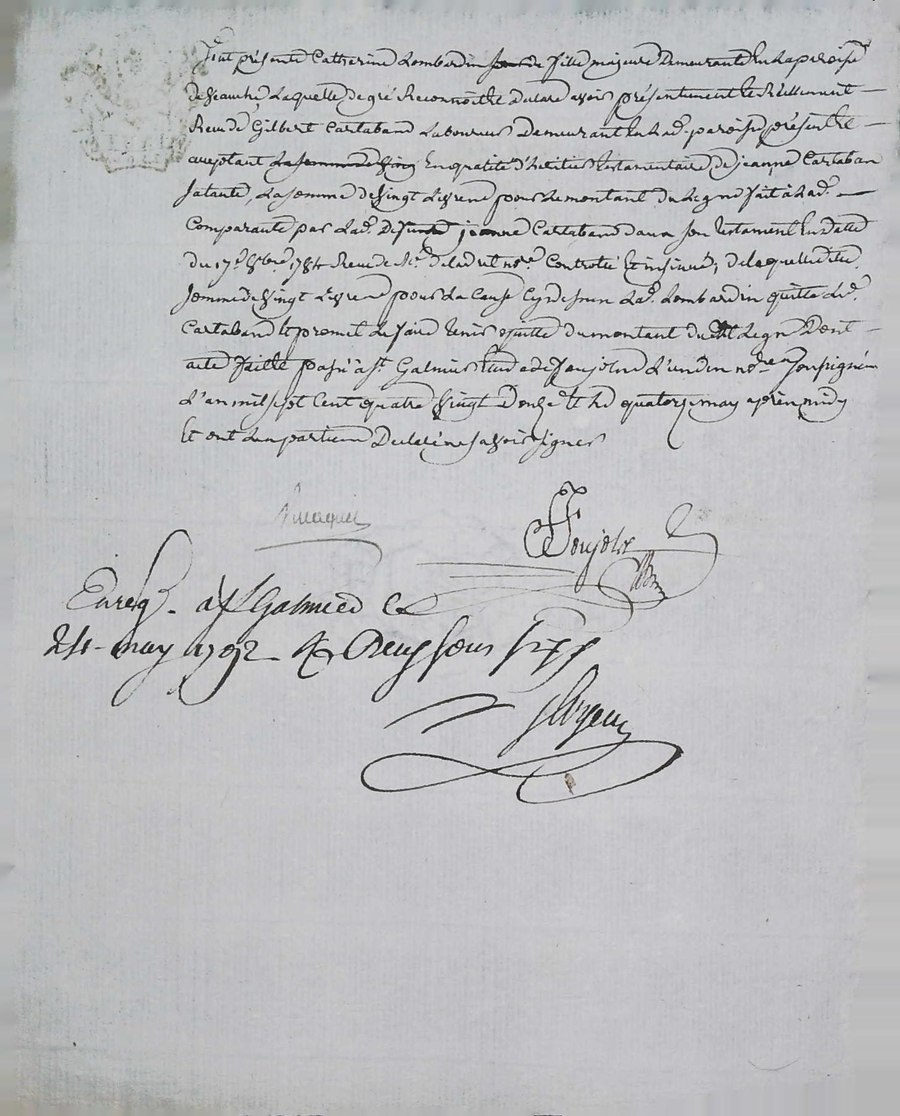 fut présente Catherine Lombardin fille majeure Demeurante En la paroisse
de laquelle de gré Reconnoître Declare avoir présentement et Réellement
Reçu de Gilbert Cartaband Laboureur Demeurant En lad. paroisse présent et
acceptant En qualité d'héritier testamentaire de jeanne Cartaban
sa tante, La somme de vingt Livres pour le montant du Legat fait à lad.
Comparante par Lad. Defunte jeanne Cartaband dans son testament En datte
du 17e 8bre 1784 Reçu de Me notre Controllé Et insinué; de laquelle ditte
somme de vingt Livres pour La Cause Cy dessus Lad. Lombardin quitte Led.
Cartaband et promet Le faire tenir quitte du montant dudit Legat Dont
acte fait et passé à St Galmier Etude de Soujolx L'un des nores soussignés
L'an mil sept Cent quatre vingt Douze et le quatorze may après midy
Et ont Les parties Declaré ne savoir signer
Soujolx
Enregt. a St Galmier Ce
24 may 1792 Reçu sous